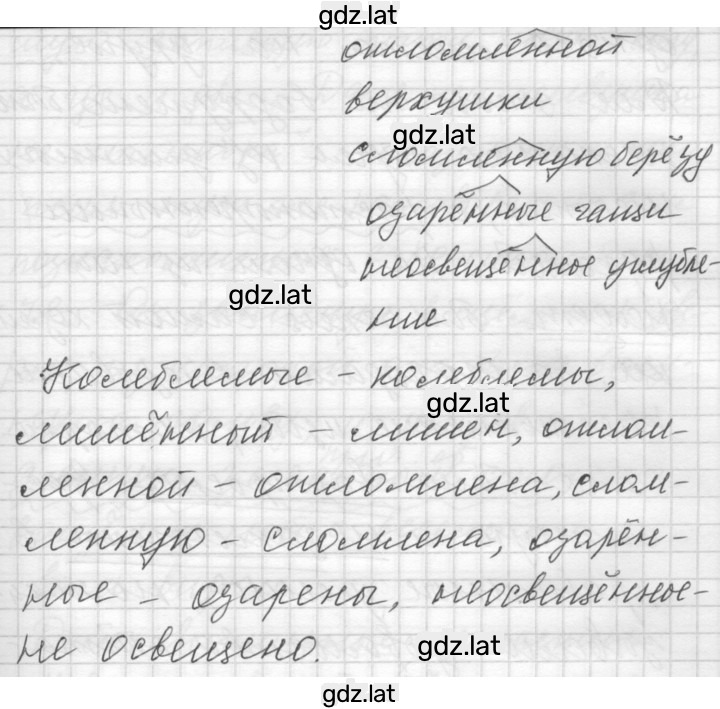 gdz.lat
отломленной
верхушки
gdz.lat
сломленную берёзу
озарённые чащи
неосвещённое углубле-
gdz.lat
ние
Колеблемые - колеблемы,
gdz.lat
лишённый - лишен, отлом-
ленной - отломлена, слом-
ленную - сломлена, озарён-
ные - озарены, неосвещённое-
не освещено.
gdz.lat
gdz.lat